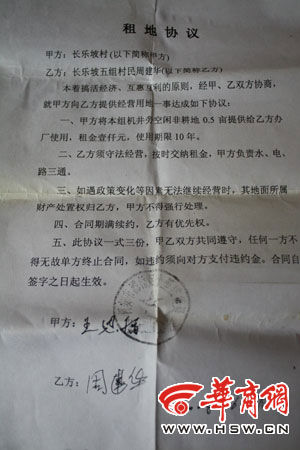 租地协议
甲方：长乐坡村(以下简称甲方)
乙方：长乐坡五组村民周建华(以下简称乙方)
本着搞活经济、互惠互利的原则，经甲、乙双方协商，
就甲方向乙方提供经营用地一事达成如下协议：
一、甲方将本组机井旁空闲非耕地0.5亩提供给乙方办
厂使用，租金壹仟元，使用期限10年。
二、乙方须守法经营，按时交纳租金，甲方负责水、电、
路三通。
三、如遇政策变化等因素无法继续经营时，其地面所属
财产处置权归乙方，甲方不得强行处理。
四、合同期满续约，乙方有优先权。
五、此协议一式三份，甲乙双方共同遵守，任何一方不
得无故单方终止合同，如违约须向对方支付违约金。合同自
签字之日起生效。
甲方：
乙方：周建华
华商网
WWW.HSW.CN